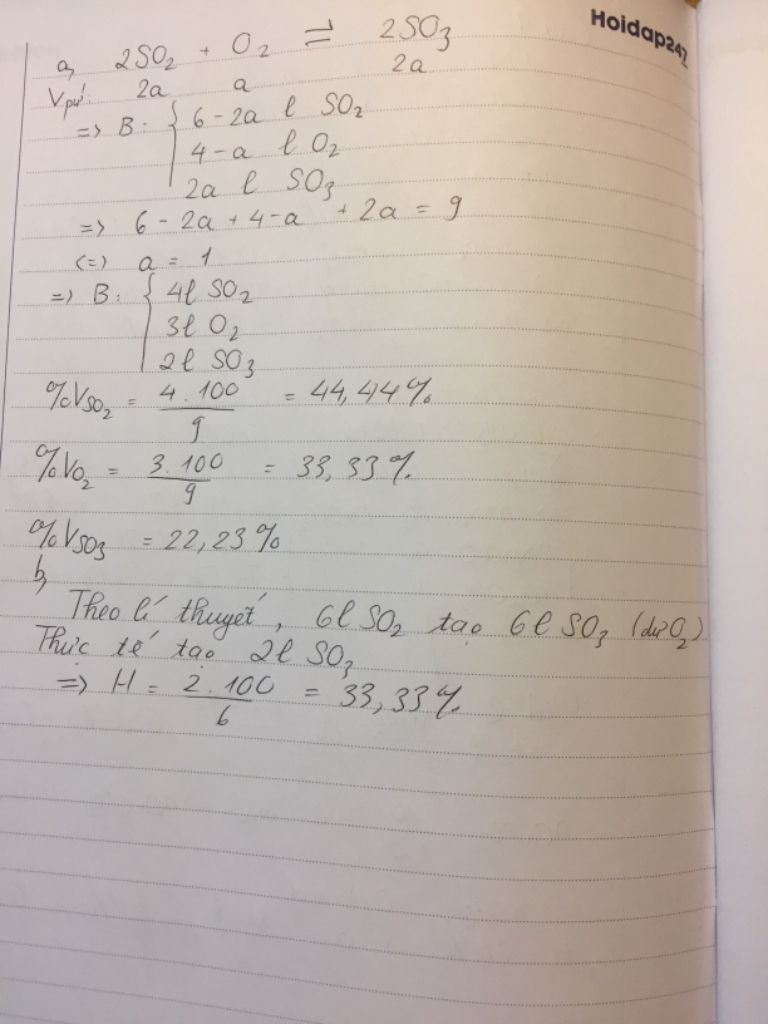 Hoidap247
a, 2SO2 + O2 ⇌ 2SO3
Vpư: 2a a 2a
=> B: { 6 - 2a l SO2
4 - a l O2
2a l SO3
=> 6 - 2a + 4 - a + 2a = 9
(=) a = 1
=> B: { 4l SO2
3l O2
2l SO3
%VSO2 = 4.100 / 9 = 44,44%
%VO2 = 3.100 / 9 = 33,33%
%VSO3 = 22,23%
b,
Theo lí thuyết, 6l SO2 tạo 6l SO3 (dư O2)
Thực tế tạo 2l SO3
=> H = 2.100 / 6 = 33,33%